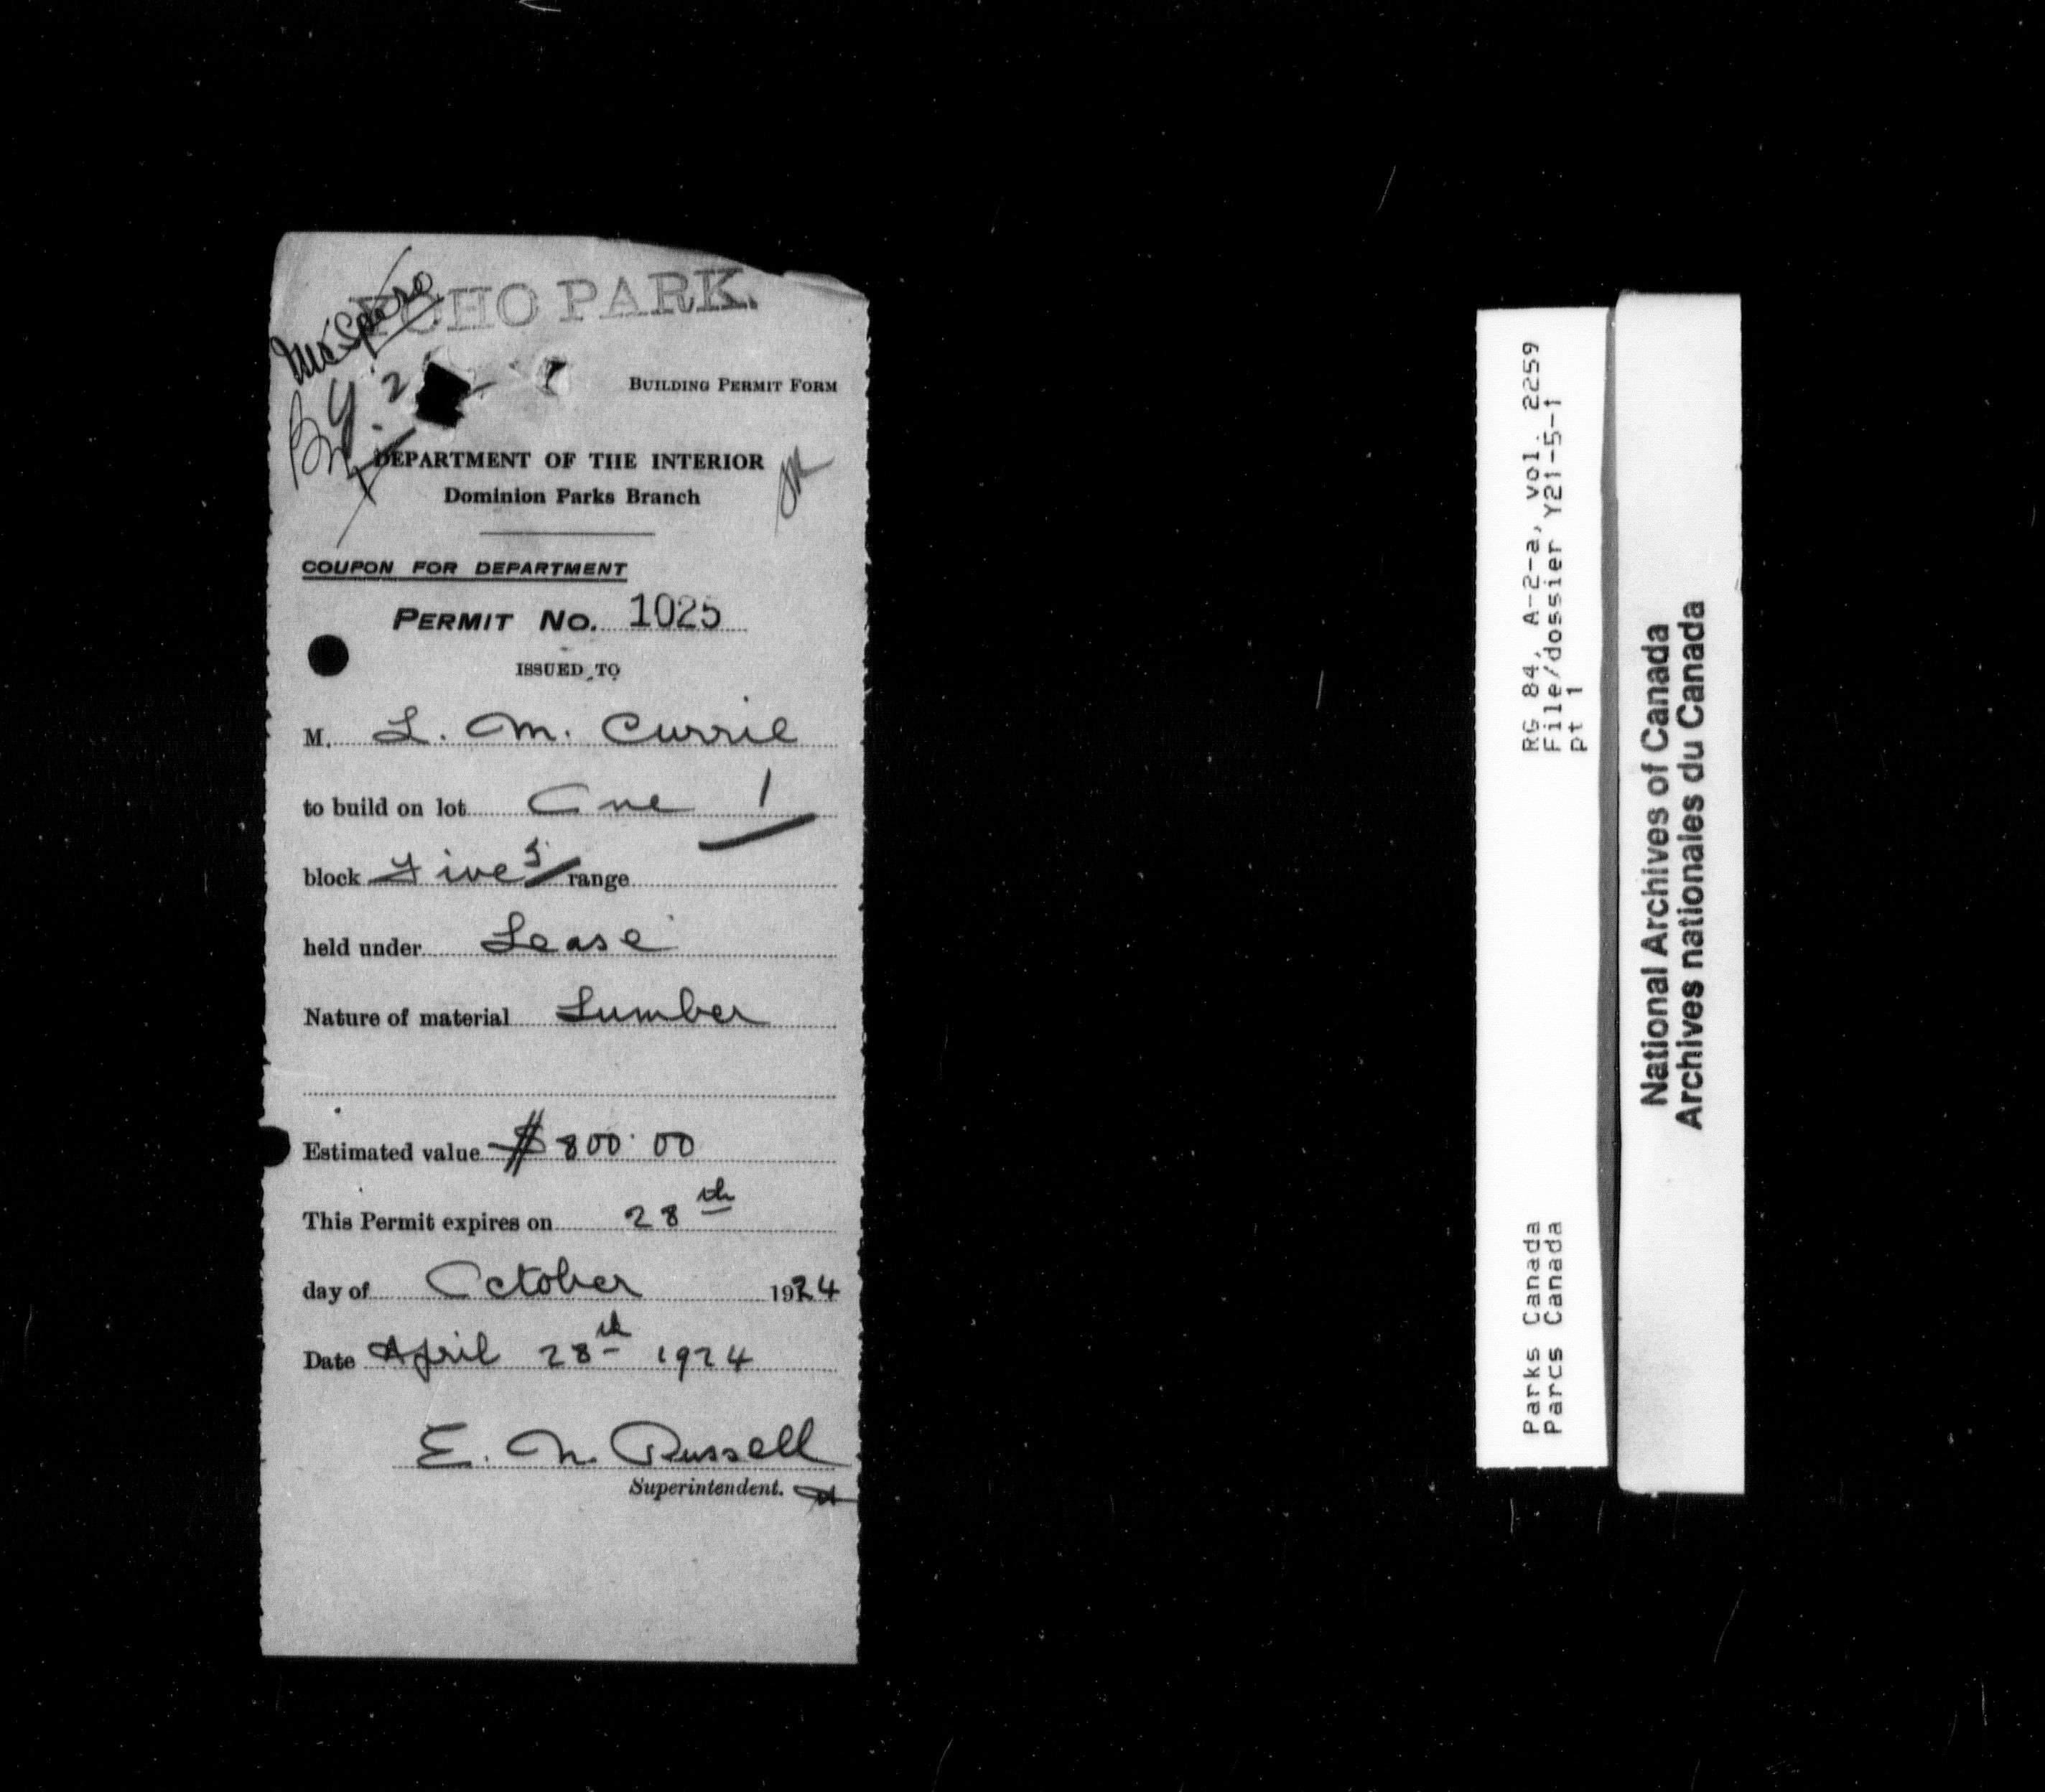 YOHO PARK.
Y. 2
BUILDING PERMIT FORM
DEPARTMENT OF THE INTERIOR
Dominion Parks Branch
COUPON FOR DEPARTMENT
PERMIT NO. 1025
ISSUED TO
M. L. M. Currie
to build on lot One 1
block Five 5 range
held under Lease
Nature of material Lumber
Estimated value $800.00
This Permit expires on 28th
day of October 1924
Date April 28th 1924
E. N. Russell
Superintendent.
RG 84, A-2-a, vol. 2259
File/dossier Y21-5-1
pt 1
Parks Canada
Parcs Canada
National Archives of Canada
Archives nationales du Canada